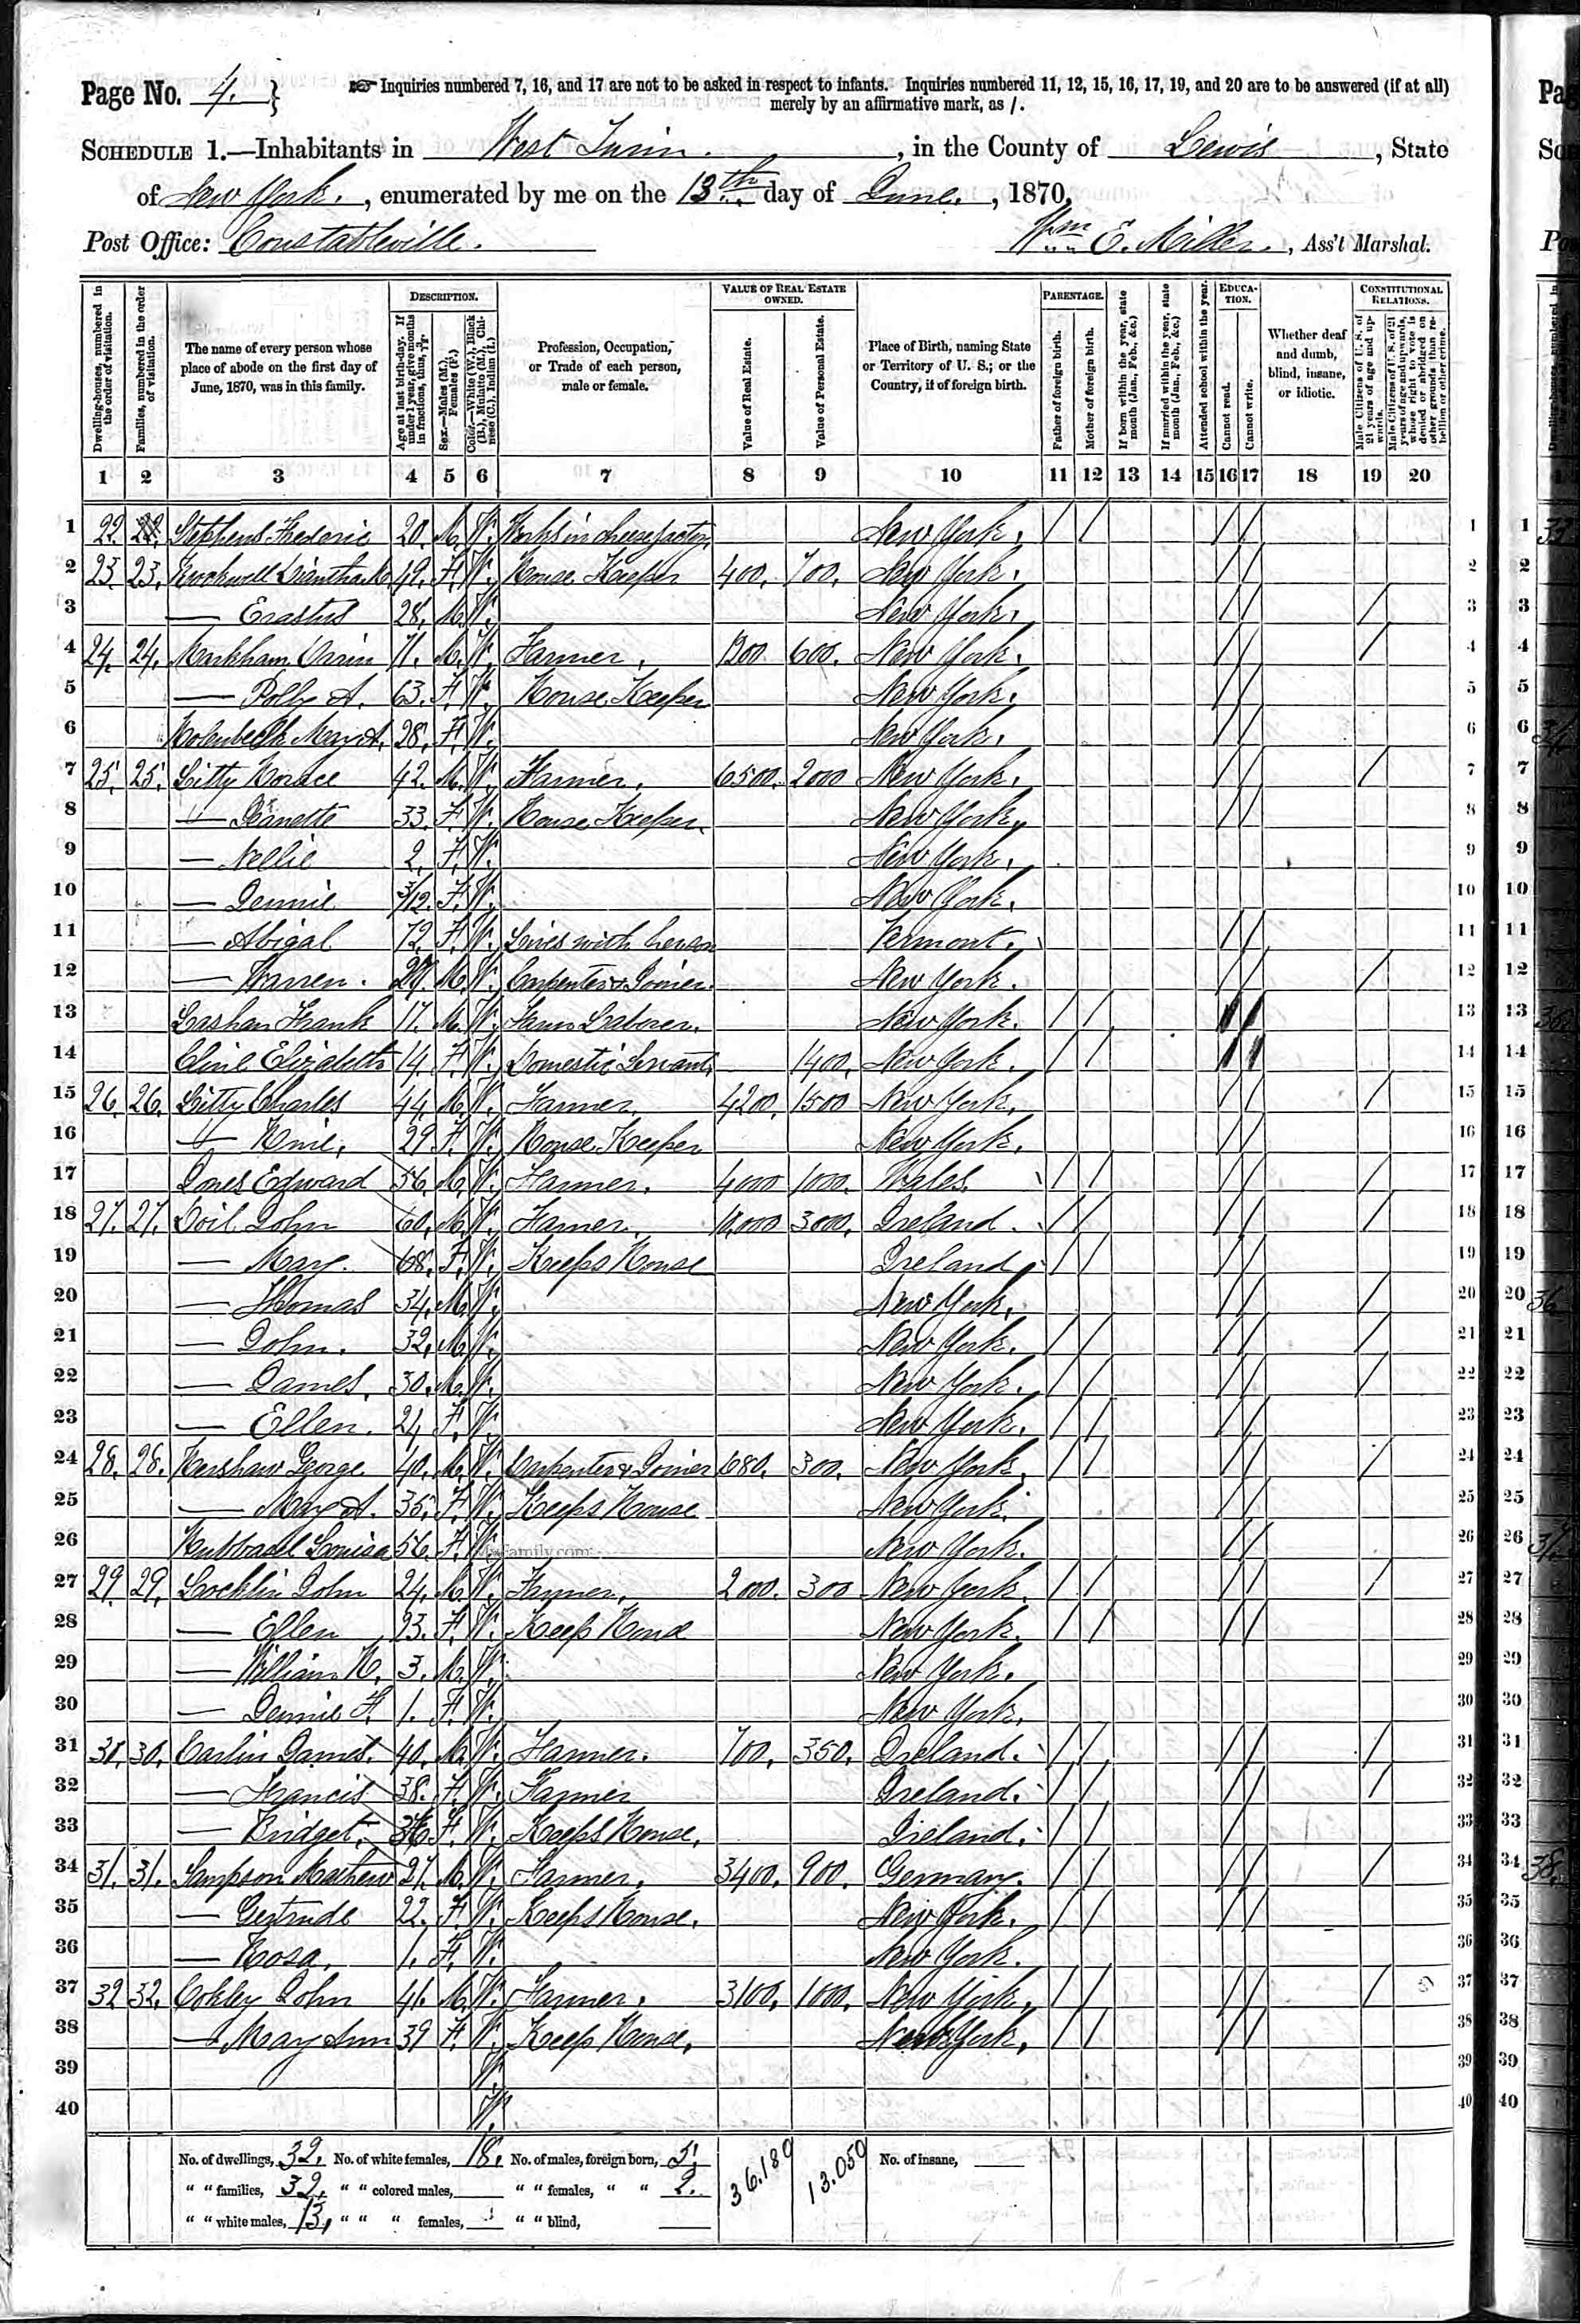 Page No. 4. } ☞ Inquiries numbered 7, 16, and 17 are not to be asked in respect to infants. Inquiries numbered 11, 12, 15, 16, 17, 19, and 20 are to be answered (if at all)
merely by an affirmative mark, as /.
Schedule 1.—Inhabitants in West Turin. , in the County of Lewis , State
of New York. , enumerated by me on the 13th day of June. , 1870.
Post Office: Constableville. Wm E. Miller. , Ass't Marshal.
Dwelling-houses, numbered in the order of visitation.
Families, numbered in the order of visitation.
The name of every person whose place of abode on the first day of June, 1870, was in this family.
Description.
Age at last birth-day. If under 1 year, give months in fractions, thus, 3/12.
Sex.—Males (M.), Females (F.)
Color.—White (W.), Black (B.), Mulatto (M.), Chinese (C.), Indian (I.)
Profession, Occupation, or Trade of each person, male or female.
Value of Real Estate Owned.
Value of Real Estate.
Value of Personal Estate.
Place of Birth, naming State or Territory of U. S.; or the Country, if of foreign birth.
Parentage.
Father of foreign birth.
Mother of foreign birth.
If born within the year, state month (Jan., Feb., &c.)
If married within the year, state month (Jan., Feb., &c.)
Attended school within the year.
Education.
Cannot read.
Cannot write.
Whether deaf and dumb, blind, insane, or idiotic.
Constitutional Relations.
Male Citizens of U. S. of 21 years of age and upwards.
Male Citizens of U. S. of 21 years of age and upwards, whose right to vote is denied or abridged on other grounds than rebellion or other crime.
1 2 3 4 5 6 7 8 9 10 11 12 13 14 15 16 17 18 19 20
1 22. 22. Stephens Frederic 20. M. W. Works in cheese factory New York. / / / / 1
2 23. 23. 49. F. W. House Keeper 400. 700. New York. / / 2
3 — Erastus 28. M. W. New York. / / / 3
4 24. 24. Markham Orrin 71. M. W. Farmer, 1200. 600. New York. / / / 4
5 — Polly A. 63. F. W. House Keeper New York. / / 5
6 Mary A. 28. F. W. New York. / / 6
7 25. 25. Litty Horace 42. M. W. Farmer. 6500. 2000 New York. / / / 7
8 — Jeanette 33. F. W. House Keeper New York. / / 8
9 — Nellie 2. F. W. New York. 9
10 — Jennie 3/12. F. W. New York. 10
11 — Abigal 72. F. W. Lives with her son Vermont. / / 11
12 — Warren. 27. M. W. Carpenter & Joiner. New York. / / / 12
13 Lashan Frank 17. M. W. Farm Laborer. New York. / / / / 13
14 Cline Elizabeth 14. F. W. Domestic Servant 1400. New York. / / / / 14
15 26. 26. Litty Charles 44. M. W. Farmer. 4200. 1500 New York. / / / 15
16 — 29 F. W. House Keeper New York. / / 16
17 Jones Edward 56. M. W. Farmer. 4000 1000. Wales. / / / / / 17
18 27. 27. Doil John 60. M. W. Farmer. 10,000 3000. Ireland. / / / / / 18
19 — Mary. 68. F. W. Keeps House Ireland. / / / / 19
20 — Thomas 34. M. W. New York. / / / / / 20
21 — John. 32. M. W. New York. / / / / / 21
22 — James. 30. M. W. New York. / / / / / 22
23 — Ellen. 21. F. W. New York. / / / / 23
24 28. 28. Kershaw George 40. M. W. Carpenter & Joiner 680. 300. New York. / / / / / 24
25 — Mary A. 35. F. W. Keeps House New York. / / 25
26 Hubbard Louisa 56. F. W. MyFamily.com New York. / / 26
27 29. 29. Locklin John 24. M. W. Farmer, 2000. 300 New York. / / / / / 27
28 — Ellen 23. F. W. Keeps House New York. / / / / 28
29 — William H. 3. M. W. New York. 29
30 — Jennie F. 1. F. W. New York. 30
31 30. 30. Carlin James. 40. M. W. Farmer. 700. 350. Ireland. / / / / / 31
32 — Francis 38. F. W. Farmer Ireland. / / / / / 32
33 — Bridget. 36 F. W. Keeps House. Ireland. / / / / 33
34 31. 31. Sampson Mathew 27. M. W. Farmer. 3400. 900. Germany. / / / / / 34
35 — Gertrude 22. F. W. Keeps House. New York. / / / / 35
36 — Rosa. 1. F. W. New York. 36
37 32 32. Cokley John 41. M. W. Farmer. 3100. 1000. New York. / / / / / 37
38 — Mary Ann 39 F. W. Keeps House. New York. / / / / 38
39 W. 39
40 W. 40
No. of dwellings, 32. No. of white females, 18. No. of males, foreign born, 5. 36.180 13.050 No. of insane,
" " families, 32. " " colored males, " " females, " " 2.
" " white males, 13, " " " females, " " blind,